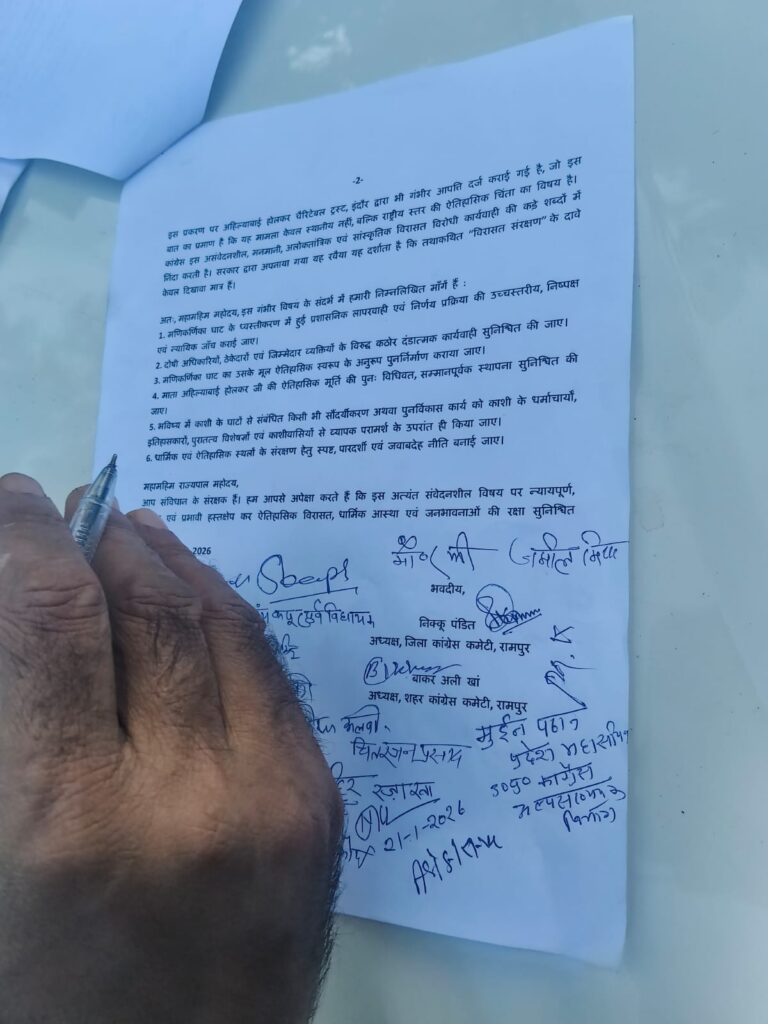 -2-
इस प्रकरण पर अहिल्याबाई होलकर चैरिटेबल ट्रस्ट, इंदौर द्वारा भी गंभीर आपति दर्ज कराई गई है, जो इस
बात का प्रमाण है कि यह मामला केवल स्थानीय नहीं, बल्कि राष्ट्रीय स्तर की ऐतिहासिक चिंता का विषय है।
कांग्रेस इस असंवेदनशील, मनमानी, अलोकतांत्रिक एवं सांस्कृतिक विरासत विरोधी कार्यवाही की कड़े शब्दों में
निंदा करती है। सरकार द्वारा अपनाया गया यह रवैया यह दर्शाता है कि तथाकथित "विरासत संरक्षण" के दावे
केवल दिखावा मात्र हैं।
अतः, महामहिम महोदय, इस गंभीर विषय के संदर्भ में हमारी निम्नलिखित माँगें हैं :
1. मणिकर्णिका घाट के ध्वस्तीकरण में हुई प्रशासनिक लापरवाही एवं निर्णय प्रक्रिया की उच्चस्तरीय, निष्पक्ष
एवं न्यायिक जाँच कराई जाए।
2. दोषी अधिकारियों, ठेकेदारों एवं जिम्मेदार व्यक्तियों के विरुद्ध कठोर दंडात्मक कार्यवाही सुनिश्चित की जाए।
3. मणिकर्णिका घाट का उसके मूल ऐतिहासिक स्वरूप के अनुरूप पुनर्निर्माण कराया जाए।
4. माता अहिल्याबाई होलकर जी की ऐतिहासिक मूर्ति की पुनः विधिवत, सम्मानपूर्वक स्थापना सुनिश्चित की
जाए।
5. भविष्य में काशी के घाटों से संबंधित किसी भी सौंदर्यीकरण अथवा पुनर्विकास कार्य को काशी के धर्माचार्यों,
इतिहासकारों, पुरातत्व विशेषज्ञों एवं काशीवासियों से व्यापक परामर्श के उपरांत ही किया जाए।
6. धार्मिक एवं ऐतिहासिक स्थलों के संरक्षण हेतु स्पष्ट, पारदर्शी एवं जवाबदेह नीति बनाई जाए।
महामहिम राज्यपाल महोदय,
आप संविधान के संरक्षक हैं। हम आपसे अपेक्षा करते हैं कि इस अत्यंत संवेदनशील विषय पर न्यायपूर्ण,
एवं प्रभावी हस्तक्षेप कर ऐतिहासिक विरासत, धार्मिक आस्था एवं जनभावनाओं की रक्षा सुनिश्चित
2026
जमील मियां
भवदीय,
पूर्व विधायक
निक्कू पंडित
अध्यक्ष, जिला कांग्रेस कमेटी, रामपुर
बाकर अली खां
अध्यक्ष, शहर कांग्रेस कमेटी, रामपुर
मुईन पठान
प्रदेश महासचिव
उ०प्र० कांग्रेस
विभाग
21-1-2026